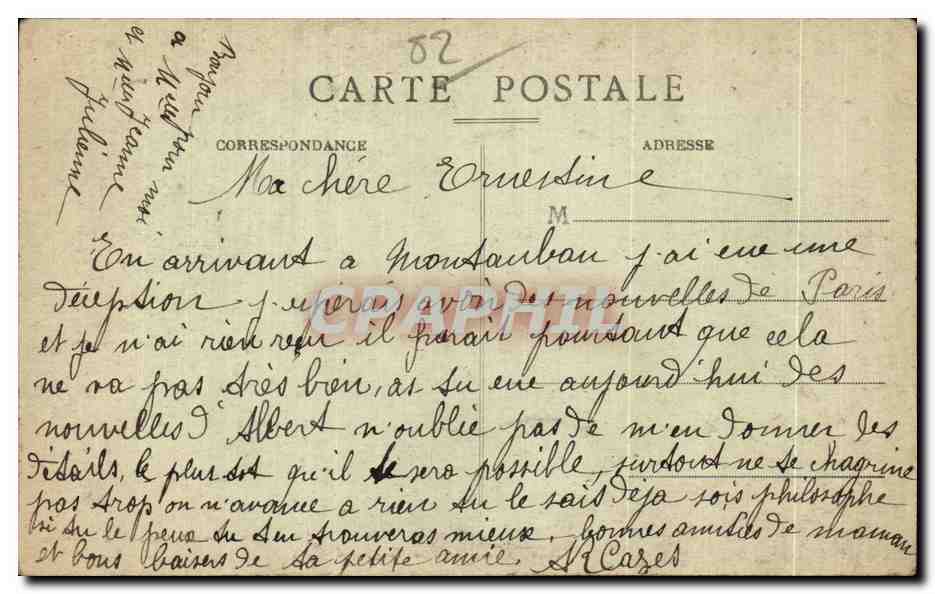 82
CARTE POSTALE
CORRESPONDANCE
ADRESSE
M
Bonjour
a Mlle pour moi
et Mlle Jeanne
Julienne
Ma chére Ernestine
En arrivant a Montauban j'ai eue une
déception j'epérais avoir des nouvelles de Paris
et je n'ai rien reçu il parait pourtant que cela
ne va pas très bien, as tu eue aujourd'hui des
nouvelles d'Albert n'oublie pas de m'en donner les
détails, le plus tot qu'il te sera possible, surtout ne te chagrine
pas trop on n'avance a rien tu le sais déja sois philosophe
si tu le peux tu t'en trouveras mieux. bonnes amitiés de maman
et bons baisers de ta petite amie. Cazes
CPAPHIL